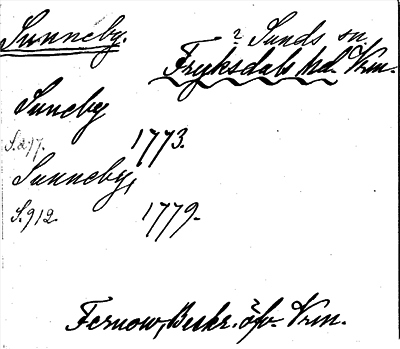 Sunneby.
i Sunds sn
Fryksdals hd. Vrm.
Suneby
S.217. 1773.
Sunneby,
S.912 1779.
Fernow, Beskr. öfv. Vrm.